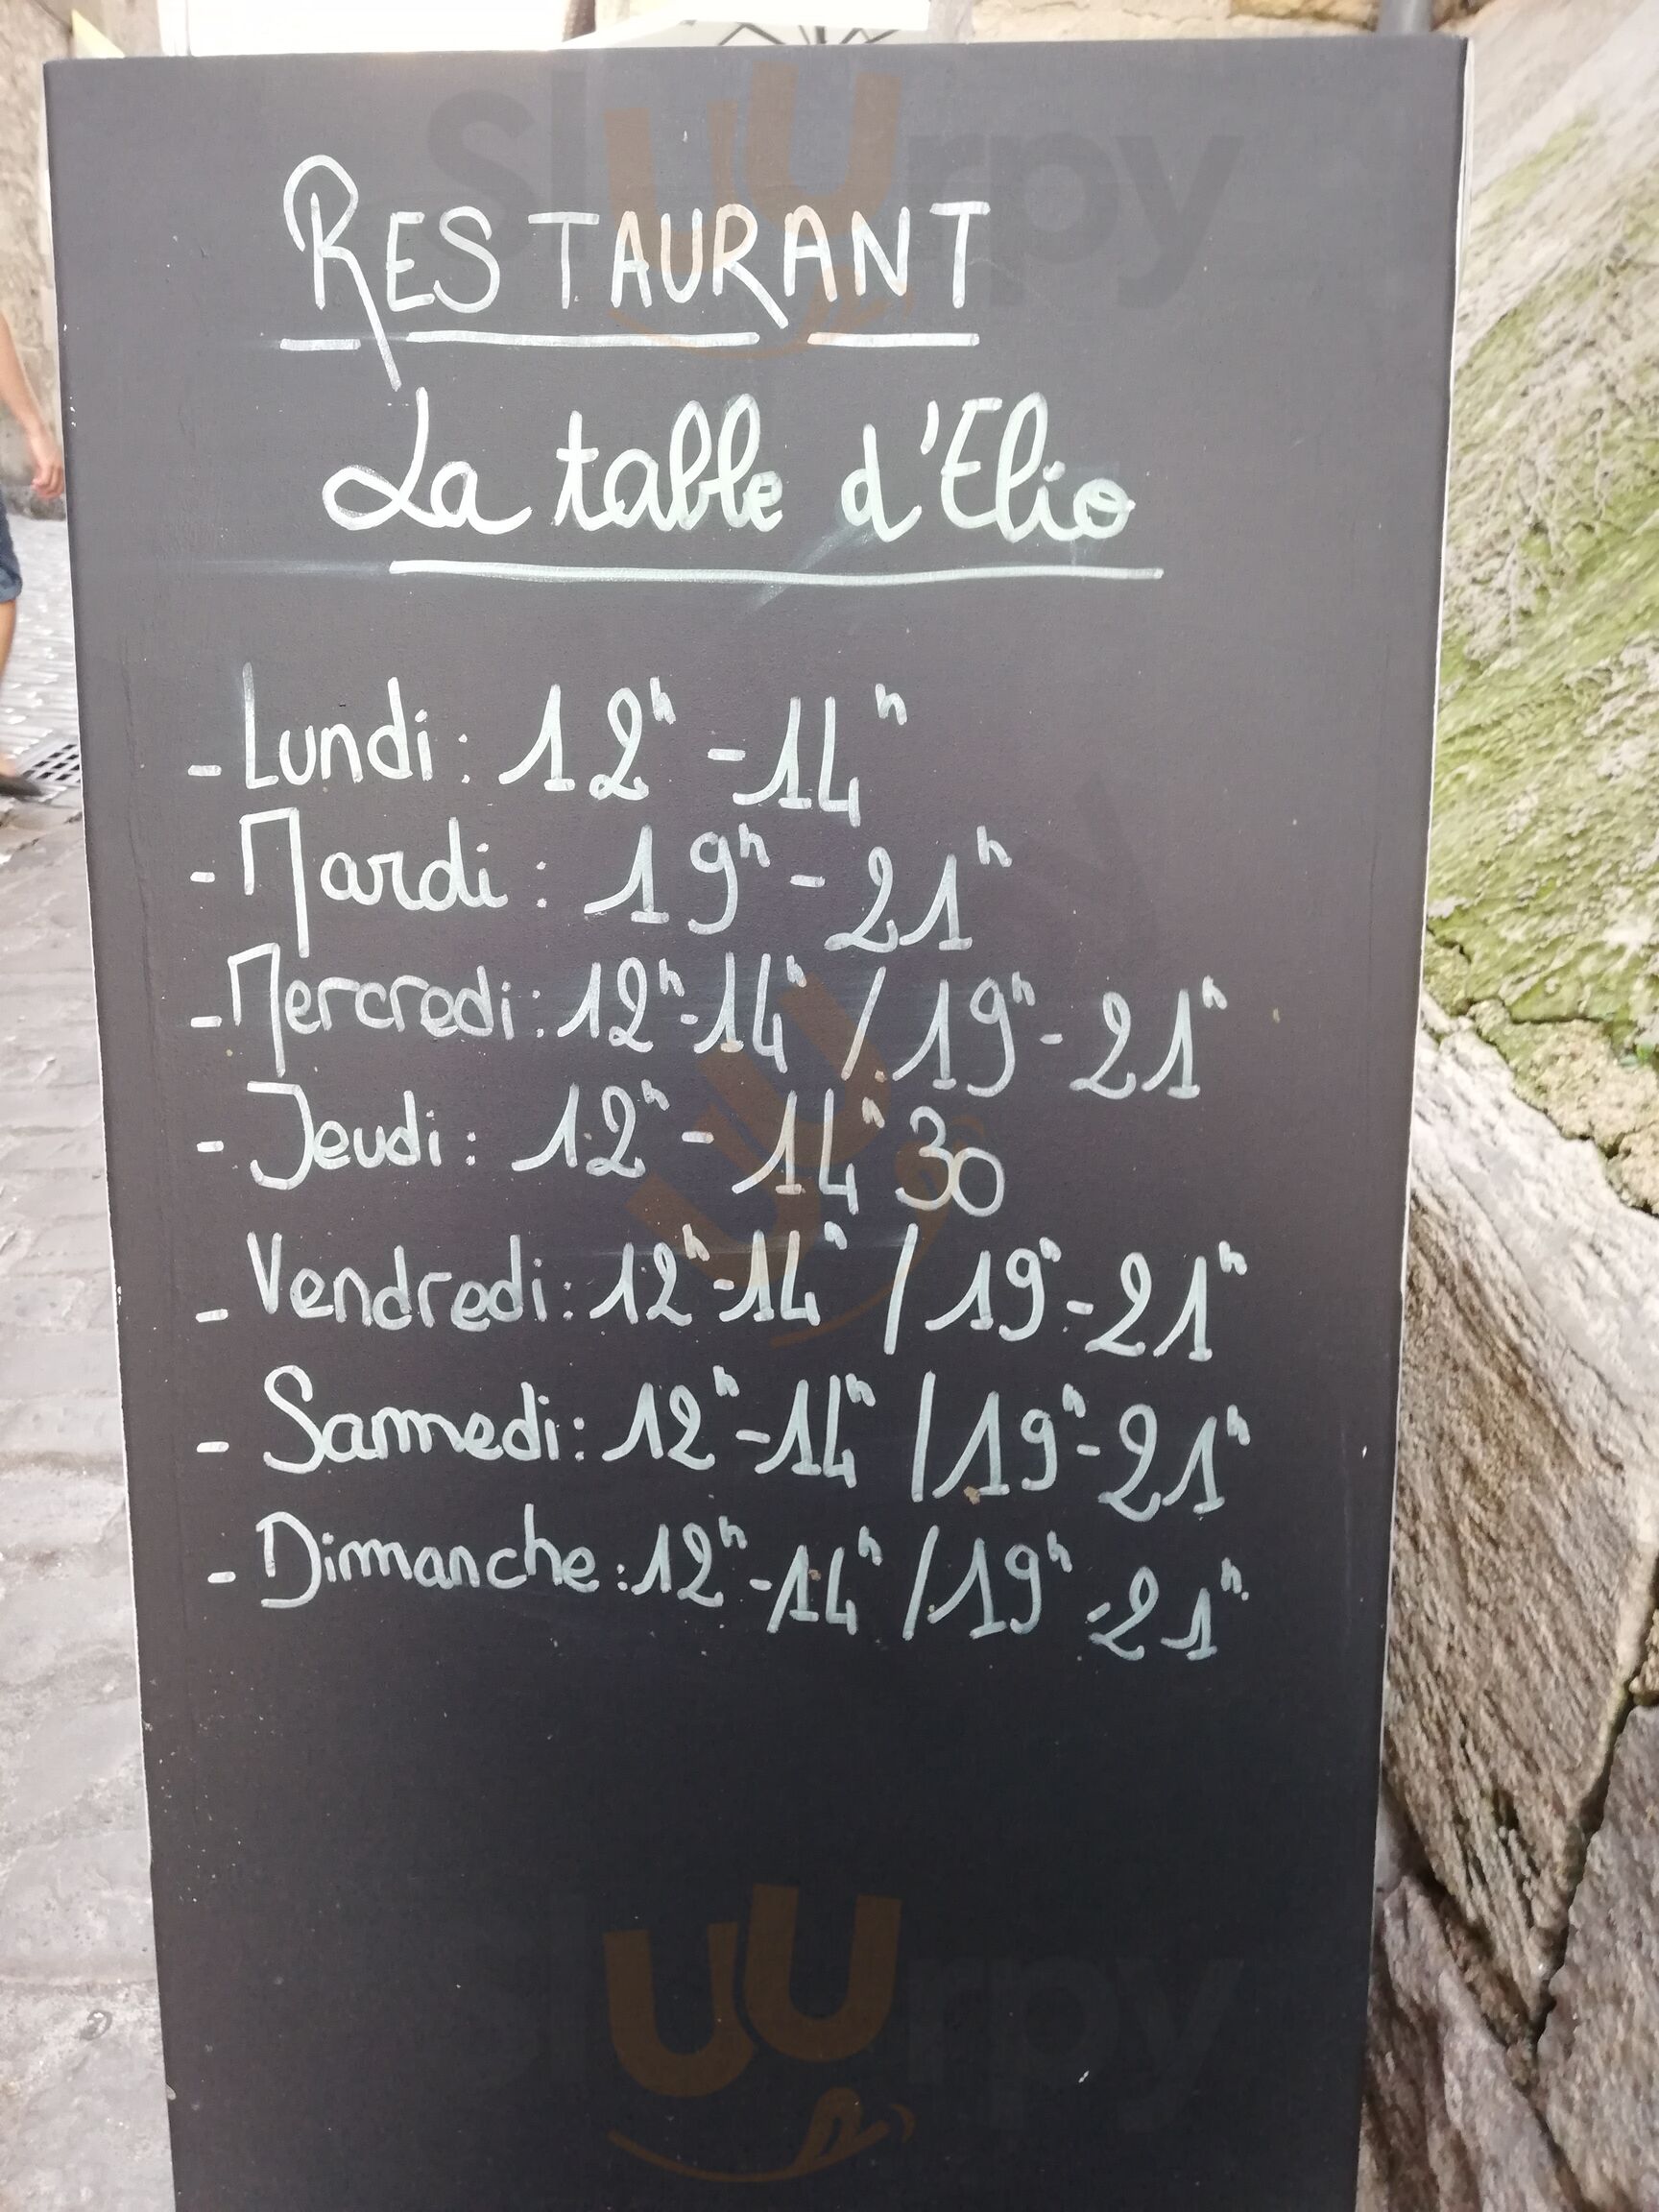 Sluurpy
RESTAURANT
La table d'Elio
- Lundi : 12h - 14h
- Mardi : 19h - 21h
- Mercredi : 12h - 14h / 19h - 21h
- Jeudi : 12h - 14h30
- Vendredi : 12h - 14h / 19h - 21h
- Samedi : 12h - 14h / 19h - 21h
- Dimanche : 12h - 14h / 19h - 21h
Sluurpy